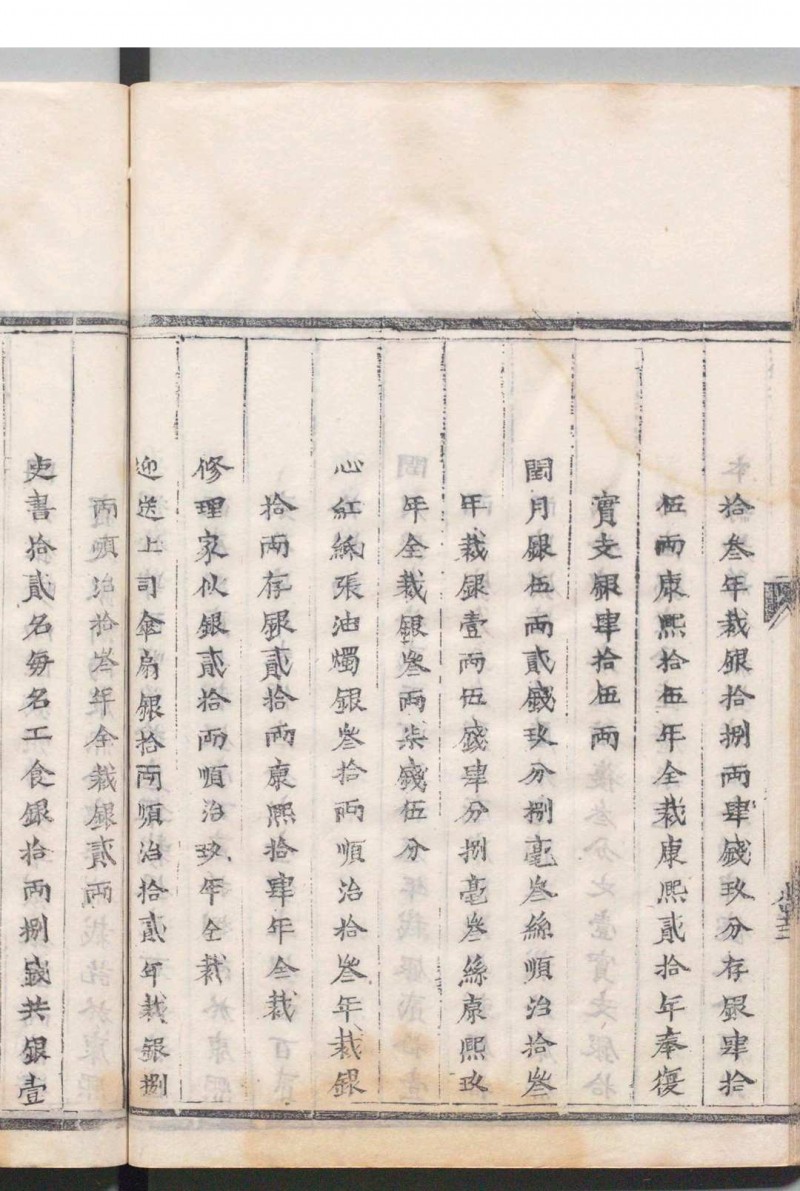 拾叁年裁銀拾捌兩肆錢玖分存銀肆拾
伍兩康熙拾伍年全裁康熙貳拾年奉復
實支銀肆拾伍兩
閏月銀伍兩貳錢玖分捌毫叄絲順治拾叄
年裁銀壹兩伍錢肆分捌毫叄絲康熙玖
年全裁銀叄兩柒錢伍分
心紅紙張油燭銀叄拾兩順治拾叄年裁銀
拾兩存銀貳拾兩康熙拾肆年全裁
修理家伙銀貳拾兩順治玖年全裁
迎送上司傘扇銀拾兩順治拾貳年裁銀捌
兩順治拾叄年全裁銀貳兩
吏書拾貳名每名工食銀拾兩捌錢共銀壹